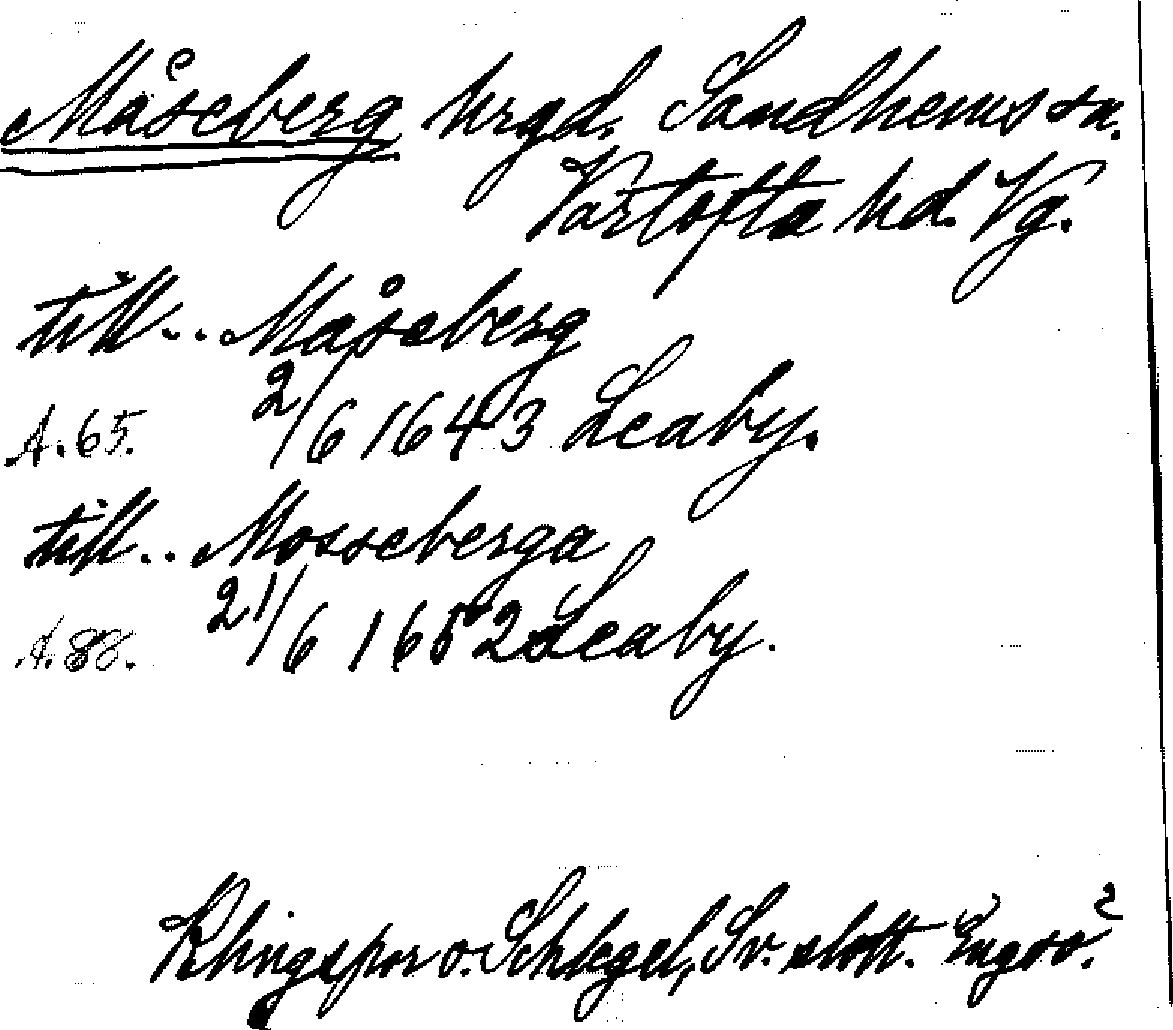 Måseberg hrgd. Sandhems sn.
Vartofta hd. Vg.
till.. Måseberg
A. 65. 2/6 1643 Leaby.
till.. Mosseberga
A. 88. 21/6 1652 Leaby.
Klingspor o. Schlegel, Sv. slott. Engsö.